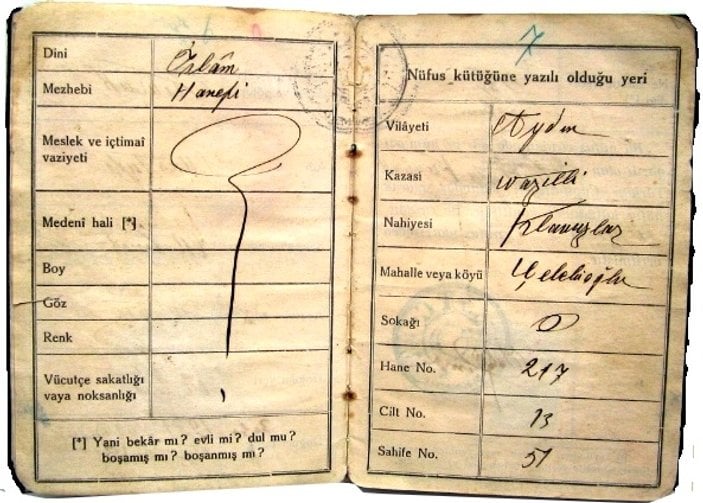 Dini
İslâm
Mezhebi
Hanefi
Meslek ve içtimaî
vaziyeti
Medenî hali [*]
Boy
Göz
Renk
Vücutçe sakatlığı
vaya noksanlığı
[*] Yani bekâr mı? evli mi? dul mu?
boşamış mı? boşanmış mı?
7
Nüfus kütüğüne yazılı olduğu yeri
Vilâyeti
Aydın
Kazasi
Nazilli
Nahiyesi
Mahalle veya köyü
Sokağı
0
Hane No.
217
Cilt No.
13
Sahife No.
51